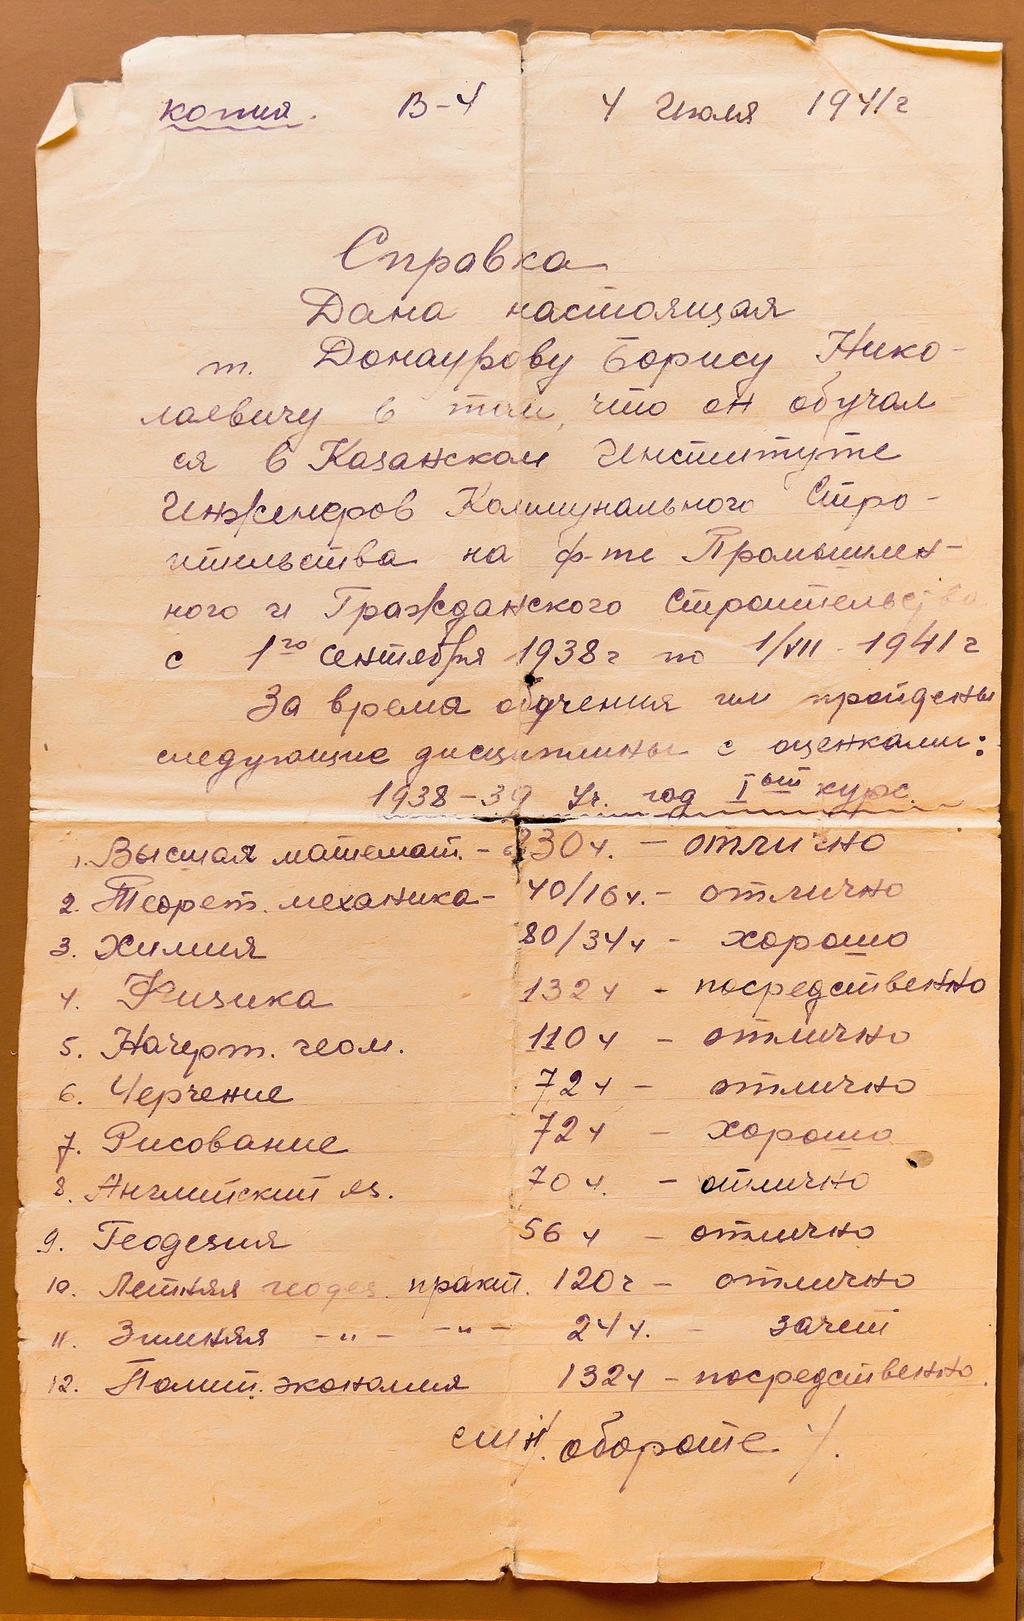 копия. В-4 4 Июля 1941 г
Справка
Дана настоящая
т. Донаурову Борису Нико-
лаевичу в том, что он обучал
ся в Казанском Институте
Инженеров Коммунального Стро-
ительства на ф-те Промышлен-
ного и Гражданского Строительства
с 1го сентября 1938 г по 1/VII - 1941 г
За время обучения им пройдены
следующие дисциплины с оценками:
1938-39 Уч. год Iый курс.
1. Высшая математ. - 30 ч. - отлично
2. Теорет. механика - 40/16 ч. - отлично
3. Химия 80/34 ч - хорошо
4. Физика 132 ч - посредственно
5. Начерт. геом. 110 ч - отлично
6. Черчение 72 ч - отлично
7. Рисование 72 ч - хорошо
8. Английский яз. 70 ч. - отлично
9. Геодезия 56 ч - отлично
10. Летняя геодез. практ. 120 ч - отлично
11. Зимняя -"- -"- 24 ч. - зачет
12. Полит. экономия 132 ч - посредственно.
см н/ обороте /.